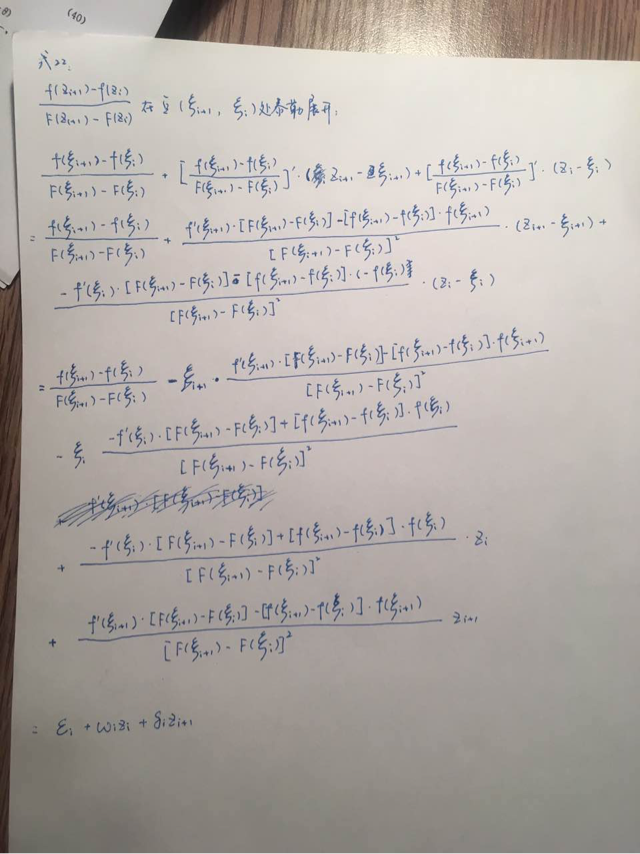 (40)
式22:
\frac{f(z_{i+1})-f(z_i)}{F(z_{i+1})-F(z_i)} 在 (ξ_{i+1}, ξ_i)处泰勒展开:
\frac{f(ξ_{i+1})-f(ξ_i)}{F(ξ_{i+1})-F(ξ_i)} + [\frac{f(ξ_{i+1})-f(ξ_i)}{F(ξ_{i+1})-F(ξ_i)}]'·(z_{i+1}-ξ_{i+1})+[\frac{f(ξ_{i+1})-f(ξ_i)}{F(ξ_{i+1})-F(ξ_i)}]'·(z_i-ξ_i)
= \frac{f(ξ_{i+1})-f(ξ_i)}{F(ξ_{i+1})-F(ξ_i)} + \frac{f'(ξ_{i+1})·[F(ξ_{i+1})-F(ξ_i)]-[f(ξ_{i+1})-f(ξ_i)]·f(ξ_{i+1})}{[F(ξ_{i+1})-F(ξ_i)]^2}·(z_{i+1}-ξ_{i+1})+
\frac{-f'(ξ_i)·[F(ξ_{i+1})-F(ξ_i)]-[f(ξ_{i+1})-f(ξ_i)]·(-f(ξ_i))}{[F(ξ_{i+1})-F(ξ_i)]^2}·(z_i-ξ_i)
= \frac{f(ξ_{i+1})-f(ξ_i)}{F(ξ_{i+1})-F(ξ_i)} -ξ_{i+1}·\frac{f'(ξ_{i+1})·[F(ξ_{i+1})-F(ξ_i)]-[f(ξ_{i+1})-f(ξ_i)]·f(ξ_{i+1})}{[F(ξ_{i+1})-F(ξ_i)]^2}
-ξ_i \frac{-f'(ξ_i)·[F(ξ_{i+1})-F(ξ_i)]+[f(ξ_{i+1})-f(ξ_i)]·f(ξ_i)}{[F(ξ_{i+1})-F(ξ_i)]^2}
+ \frac{-f'(ξ_i)·[F(ξ_{i+1})-F(ξ_i)]+[f(ξ_{i+1})-f(ξ_i)]·f(ξ_i)}{[F(ξ_{i+1})-F(ξ_i)]^2}·z_i
+ \frac{f'(ξ_{i+1})·[F(ξ_{i+1})-F(ξ_i)]-[f(ξ_{i+1})-f(ξ_i)]·f(ξ_{i+1})}{[F(ξ_{i+1})-F(ξ_i)]^2} z_{i+1}
= ε_i+ω_iz_i+δ_iz_{i+1}